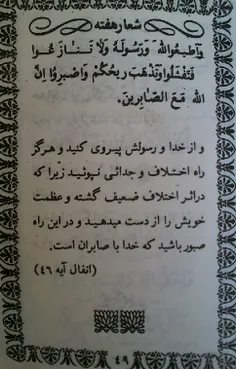 شعار هفته
وَاَطیعُواللهَ وَرَسُولَهُ وَلا تَـنـازَعُـوا
فَتَفْشَلُوا وَتَذْهَبَ ریحُکُمْ وَاصْبِرُوا اِنَّ
اللهَ مَعَ الصّابِرینَ.
و از خدا و رسولش پیروی کنید و هرگز
راه اختـلاف و جدائـی نپوئیـد زیـرا که
دراثـر اختلاف ضعیف گشته و عظمت
خویش را از دست میدهیـد و در این راه
صبور باشید که خدا با صابران است.
(انفال آیه ۴۶)
۴۹